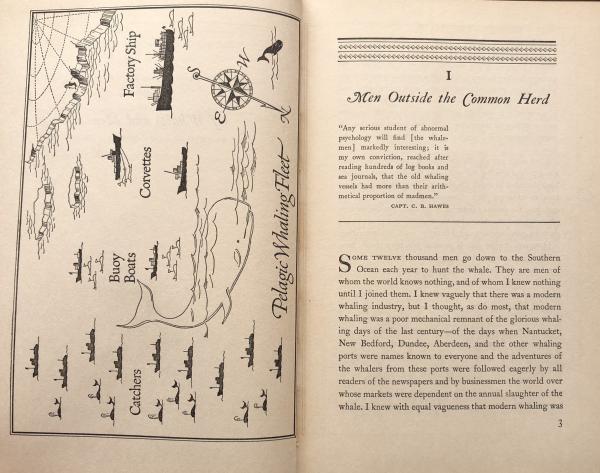 Factory Ship
Corvettes
Buoy
Boats
Catchers
Pelagic Whaling Fleet
S
W
E
N
I
Men Outside the Common Herd
"Any serious student of abnormal
psychology will find [the whale-
men] markedly interesting; it is
my own conviction, reached after
reading hundreds of log books and
sea journals, that the old whaling
vessels had more than their arith-
metical proportion of madmen."
CAPT. C. B. HAWES
SOME TWELVE thousand men go down to the Southern
Ocean each year to hunt the whale. They are men of
whom the world knows nothing, and of whom I knew nothing
until I joined them. I knew vaguely that there was a modern
whaling industry, but I thought, as do most, that modern
whaling was a poor mechanical remnant of the glorious whal-
ing days of the last century—of the days when Nantucket,
New Bedford, Dundee, Aberdeen, and the other whaling
ports were names known to everyone and the adventures of
the whalers from these ports were followed eagerly by all
readers of the newspapers and by businessmen the world over
whose markets were dependent on the annual slaughter of the
whale. I knew with equal vagueness that modern whaling was
3